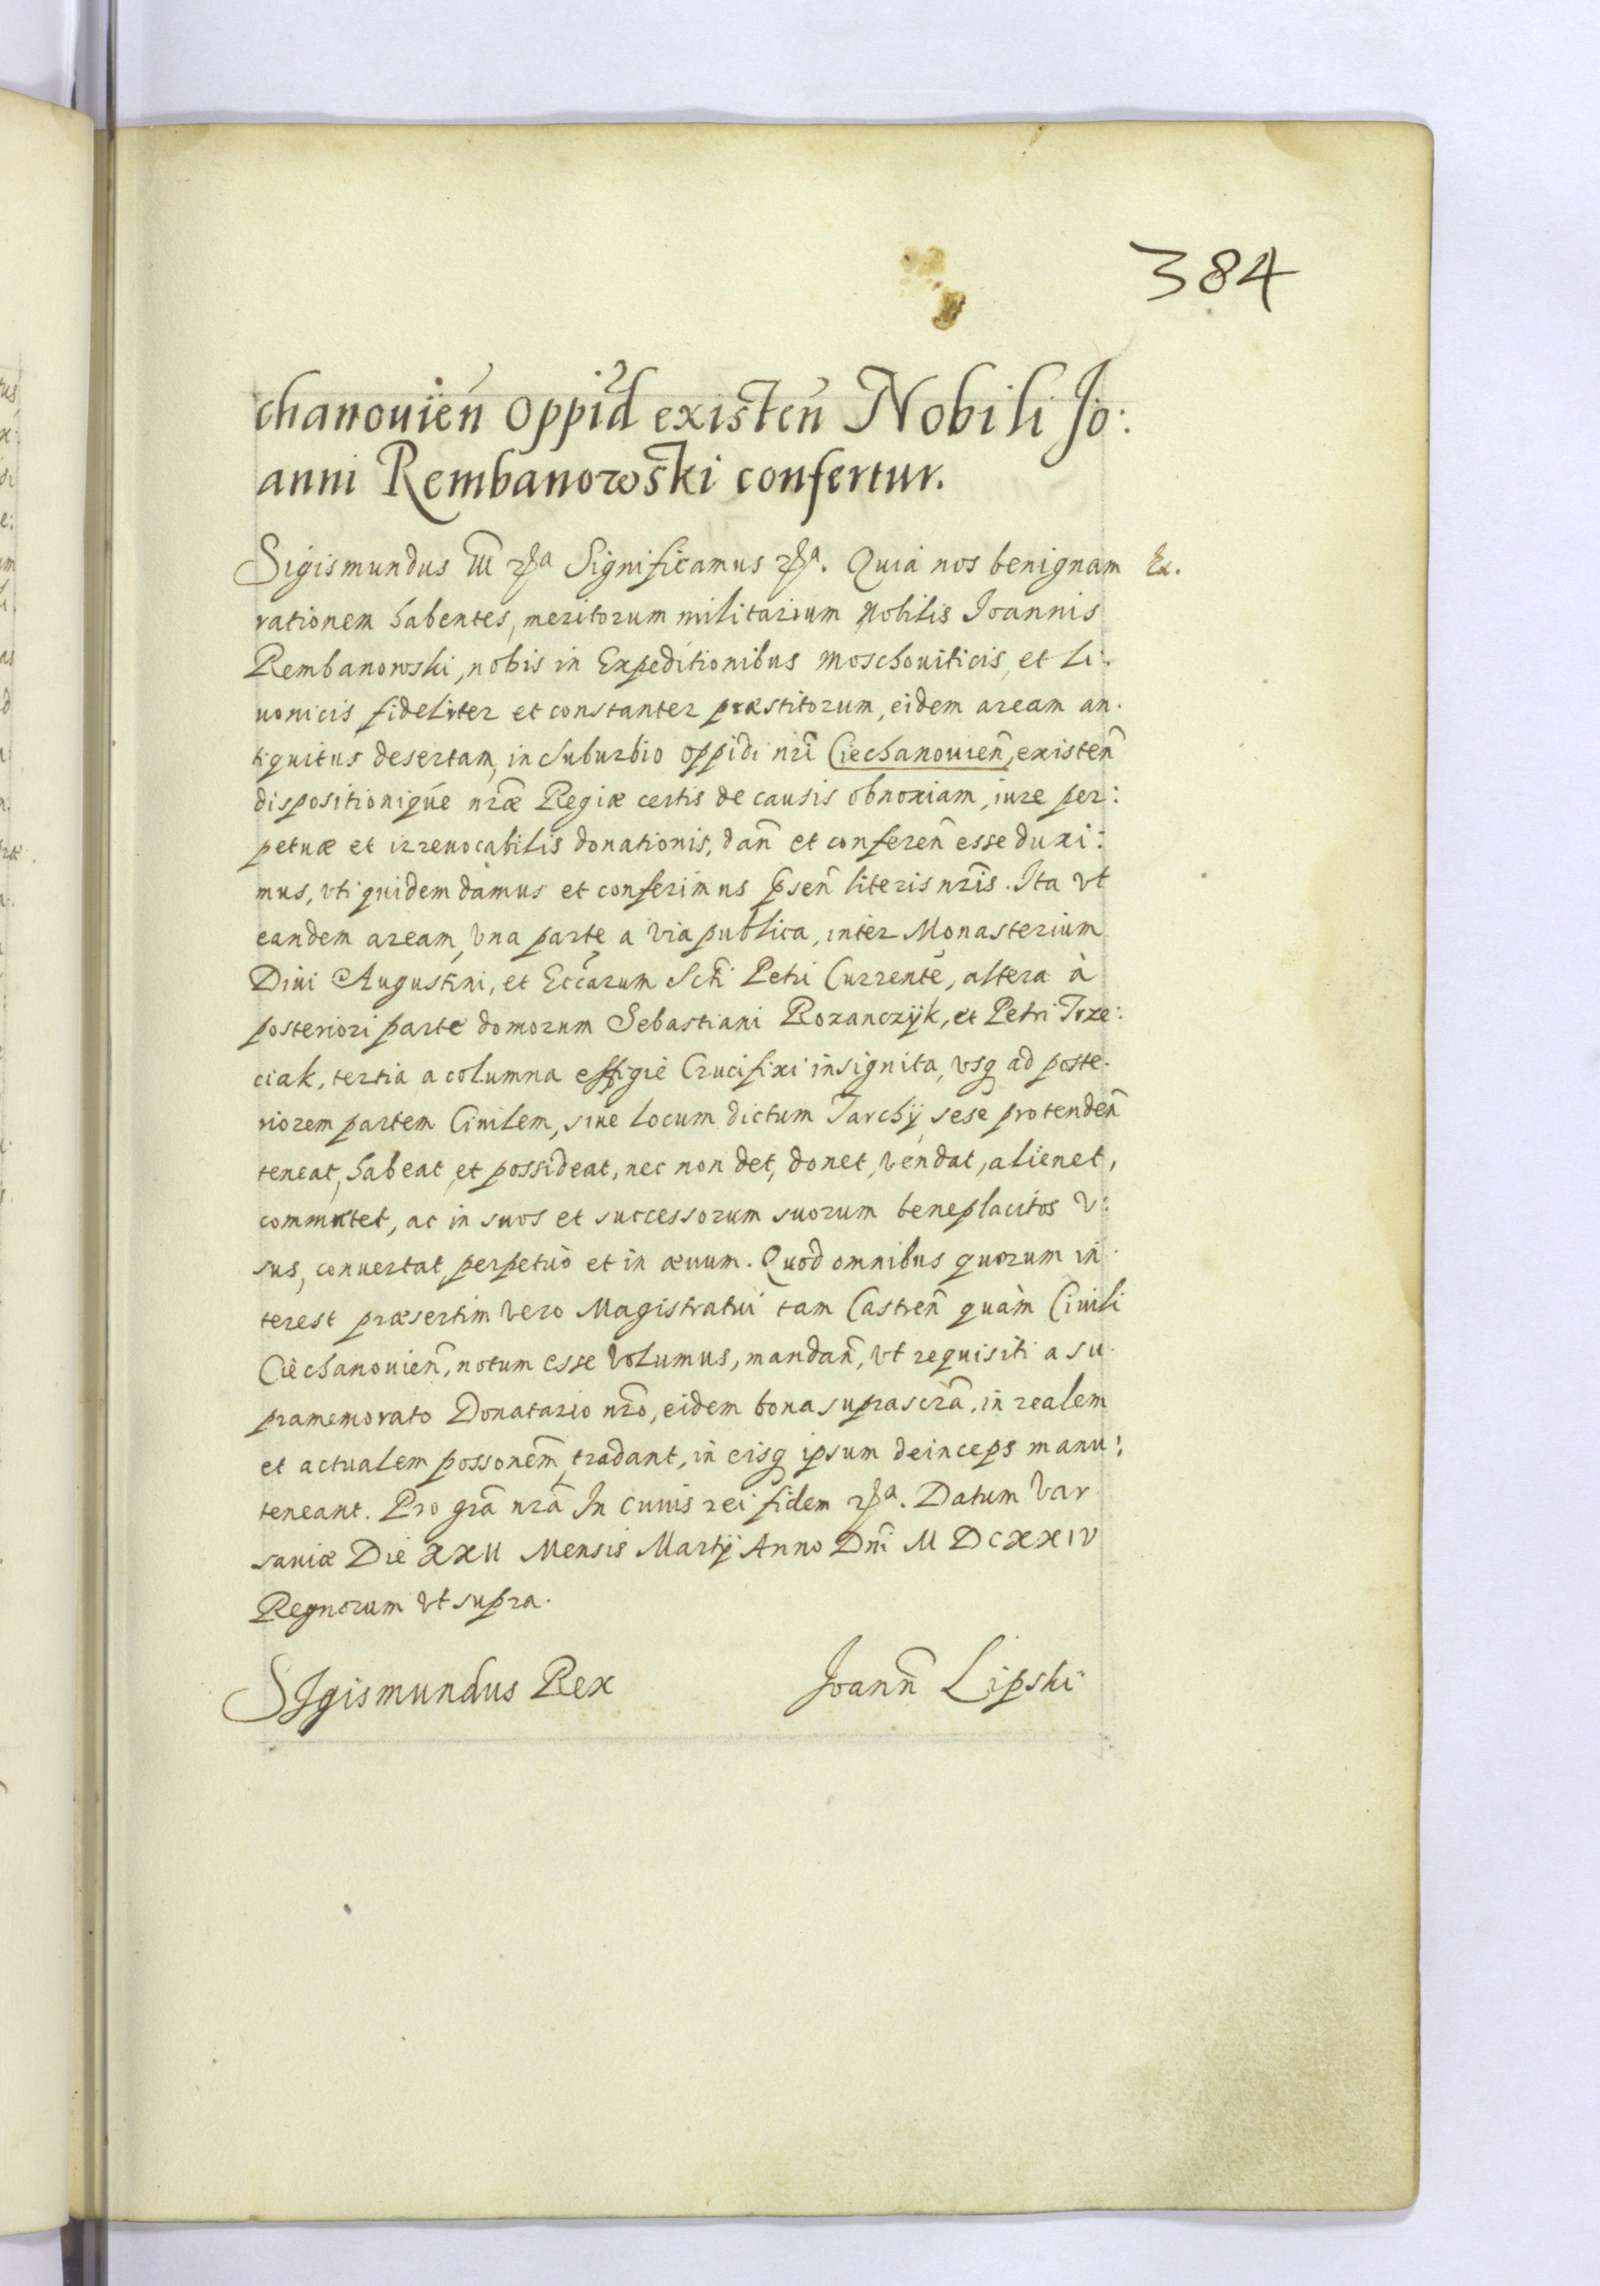 384
chanouien̄ oppid̄ existen̄ Nobili Jo:
anni Rembanowski confertur.
Sigismundus III etca Significamus etca. Quia nos benignam Ex.
rationem habentes, meritorum militarium Nobilis Joannis
Rembanowski, nobis in Expeditionibus Moschouiticis, et Li:
uonicis fideliter et constanter præstitorum, eidem aream an:
tiquitus desertam, in suburbio oppidi nri̅ Ciechanouien̄, existen̄
dispositioniqúe nræ̅ Regiæ certis de causis obnoxiam, iure per:
petuæ et irreuocabilis donationis, dan̄ et conferen̄ esse duxi:
mus, vti quidem damus et conferimus p̄sen̄ literis nri̅s. Ita vt
eandem aream, vna parte a via publica, inter Monasterium
Diui Augustini, et Ecca̅rum Scti̅ Petri Currente, altera à
posteriori parte domorum Sebastiani Rozanczyk, et Petri Trze:
ciak, tertia a columna effigie Crucifixi insignita, vsq ad poste:
riorem partem Ciuilem, siue locum dictum Tarchy, sese protenden̄
teneat, habeat et possideat, nec non det, donet, vendat, alienet,
commutet, ac in suos et successorum suorum beneplacitos v:
sus, conuertat perpetuò et in æuum. Quod omnibus quorum in:
terest præsertim vero Magistratui tam Castren̄ quàm Ciuili
Ciechanouien̄, notum esse volumus, mandan̄, vt requisiti a su:
pramemorato Donatario nro̅, eidem bona suprascra̅, in realem
et actualem possonem̄, tradant, in eisq ipsum deinceps manu:
teneant. Pro gra̅ nra̅ In cuuis rei fidem etca. Datum Var
sauiæ Die XXII Mensis Martij Anno Dni̅ M DCXXIV
Regnorum vt supra.
SIgismundus Rex Joann̄ Lipski